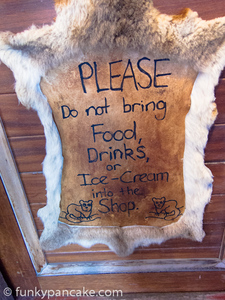 PLEASE
Do not bring
Food,
Drinks,
or
Ice-Cream
into the
Shop.
© funkypancake.com